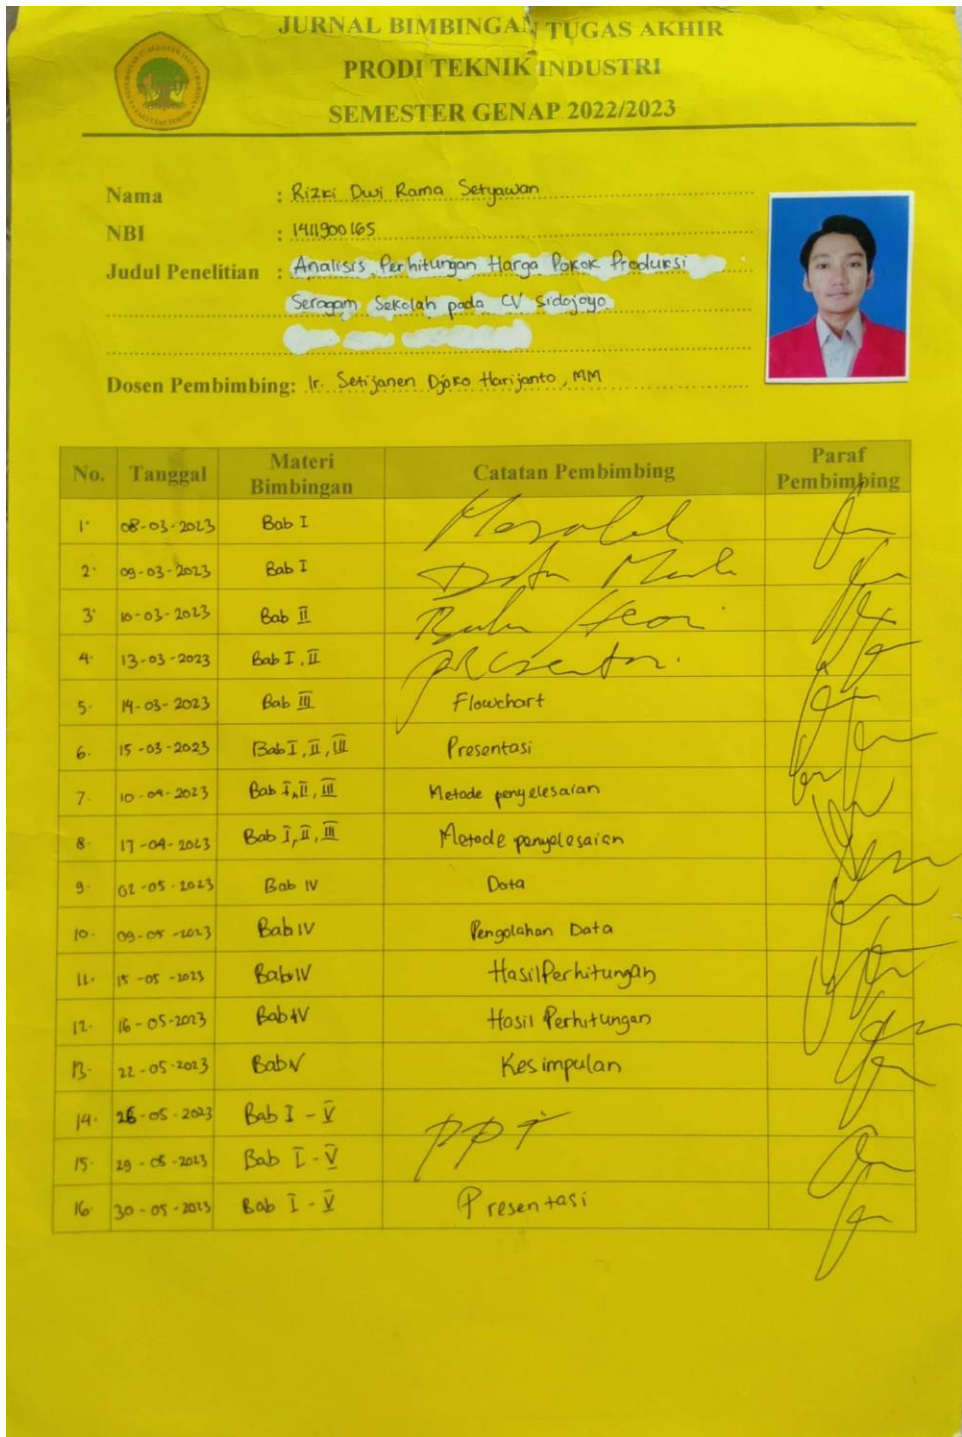 JURNAL BIMBINGAN TUGAS AKHIR
PRODI TEKNIK INDUSTRI
SEMESTER GENAP 2022/2023
Nama : Rizki Dwi Rama Setyawan
NBI : 1411900165
Judul Penelitian : Analisis Perhitungan Harga Pokok Produksi
Seragam Sekolah pada CV Sidojoyo
Dosen Pembimbing: Ir. Setijanen Djoko Harijanto, MM
No. Tanggal Materi Bimbingan Catatan Pembimbing Paraf Pembimbing
1. 08-03-2023 Bab I Masalah
2. 09-03-2023 Bab I Data
3. 10-03-2023 Bab II Buku teori
4. 13-03-2023 Bab I, II
5. 14-03-2023 Bab III Flowchart
6. 15-03-2023 Bab I, II, III Presentasi
7. 10-04-2023 Bab I, II, III Metode penyelesaian
8. 17-04-2023 Bab I, II, III Metode penyelesaian
9. 02-05-2023 Bab IV Data
10. 09-05-2023 Bab IV Pengolahan Data
11. 15-05-2023 Bab IV Hasil Perhitungan
12. 16-05-2023 Bab IV Hasil Perhitungan
13. 22-05-2023 Bab V Kesimpulan
14. 26-05-2023 Bab I - V PPT
15. 29-05-2023 Bab I - V
16. 30-05-2023 Bab I - V Presentasi